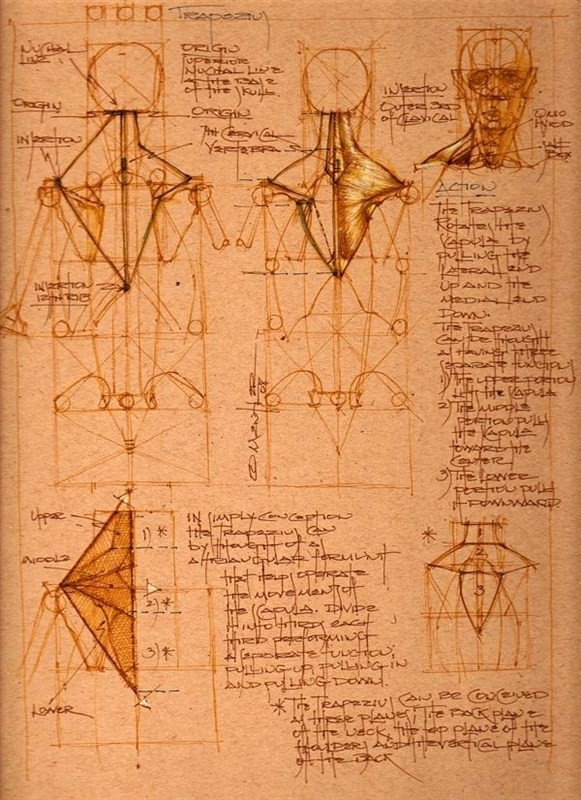 TRAPEZIUS
NUCHAL
LINE
ORIGIN
SUPERIOR
NUCHAL LINE
AT THE BASE
OF THE SKULL
ORIGIN
ORIGIN
INSERTION
7TH CERVICAL
VERTEBRA
INSERTION
12TH RIB
INSERTION
OUTER 3RD
OF CLAVICAL
OMO
HYOID
ACTION
THE TRAPEZIUS
ROTATES THE
SCAPULA BY
PULLING THE
LATERAL END
UP AND THE
MEDIAL END
DOWN.
THE TRAPEZIUS
CAN BE THOUGHT
AS HAVING THREE
SEPARATE FUNCTIONS
1) THE UPPER PORTION
LIFT THE SCAPULA
2) THE MIDDLE
PORTION PULLS
THE SCAPULA
TOWARD THE
CENTER
3) THE LOWER
PORTION PULLS
IT DOWNWARD.
UPPER
MIDDLE
LOWER
1) *
2) *
3) *
IN SIMPLY CONCEPTION
THE TRAPEZIUS CAN
BY THOUGHT OF AS
A TRIANGULAR FORM UNIT
THE HELPS OPERATE
THE MOVEMENT OF
THE SCAPULA. DIVIDE
IT INTO THIRDS EACH
THIRD PERFORMING
A SEPARATE FUNCTION;
PULLING UP, PULLING IN
AND PULLING DOWN.
*
1
2
3
* THE TRAPEZIUS CAN BE CONCEIVED
AS THREE PLANES; THE BACK PLANE
OF THE NECK, THE TOP PLANE OF THE
SHOULDERS AND THE VERTICAL PLANE
OF THE BACK